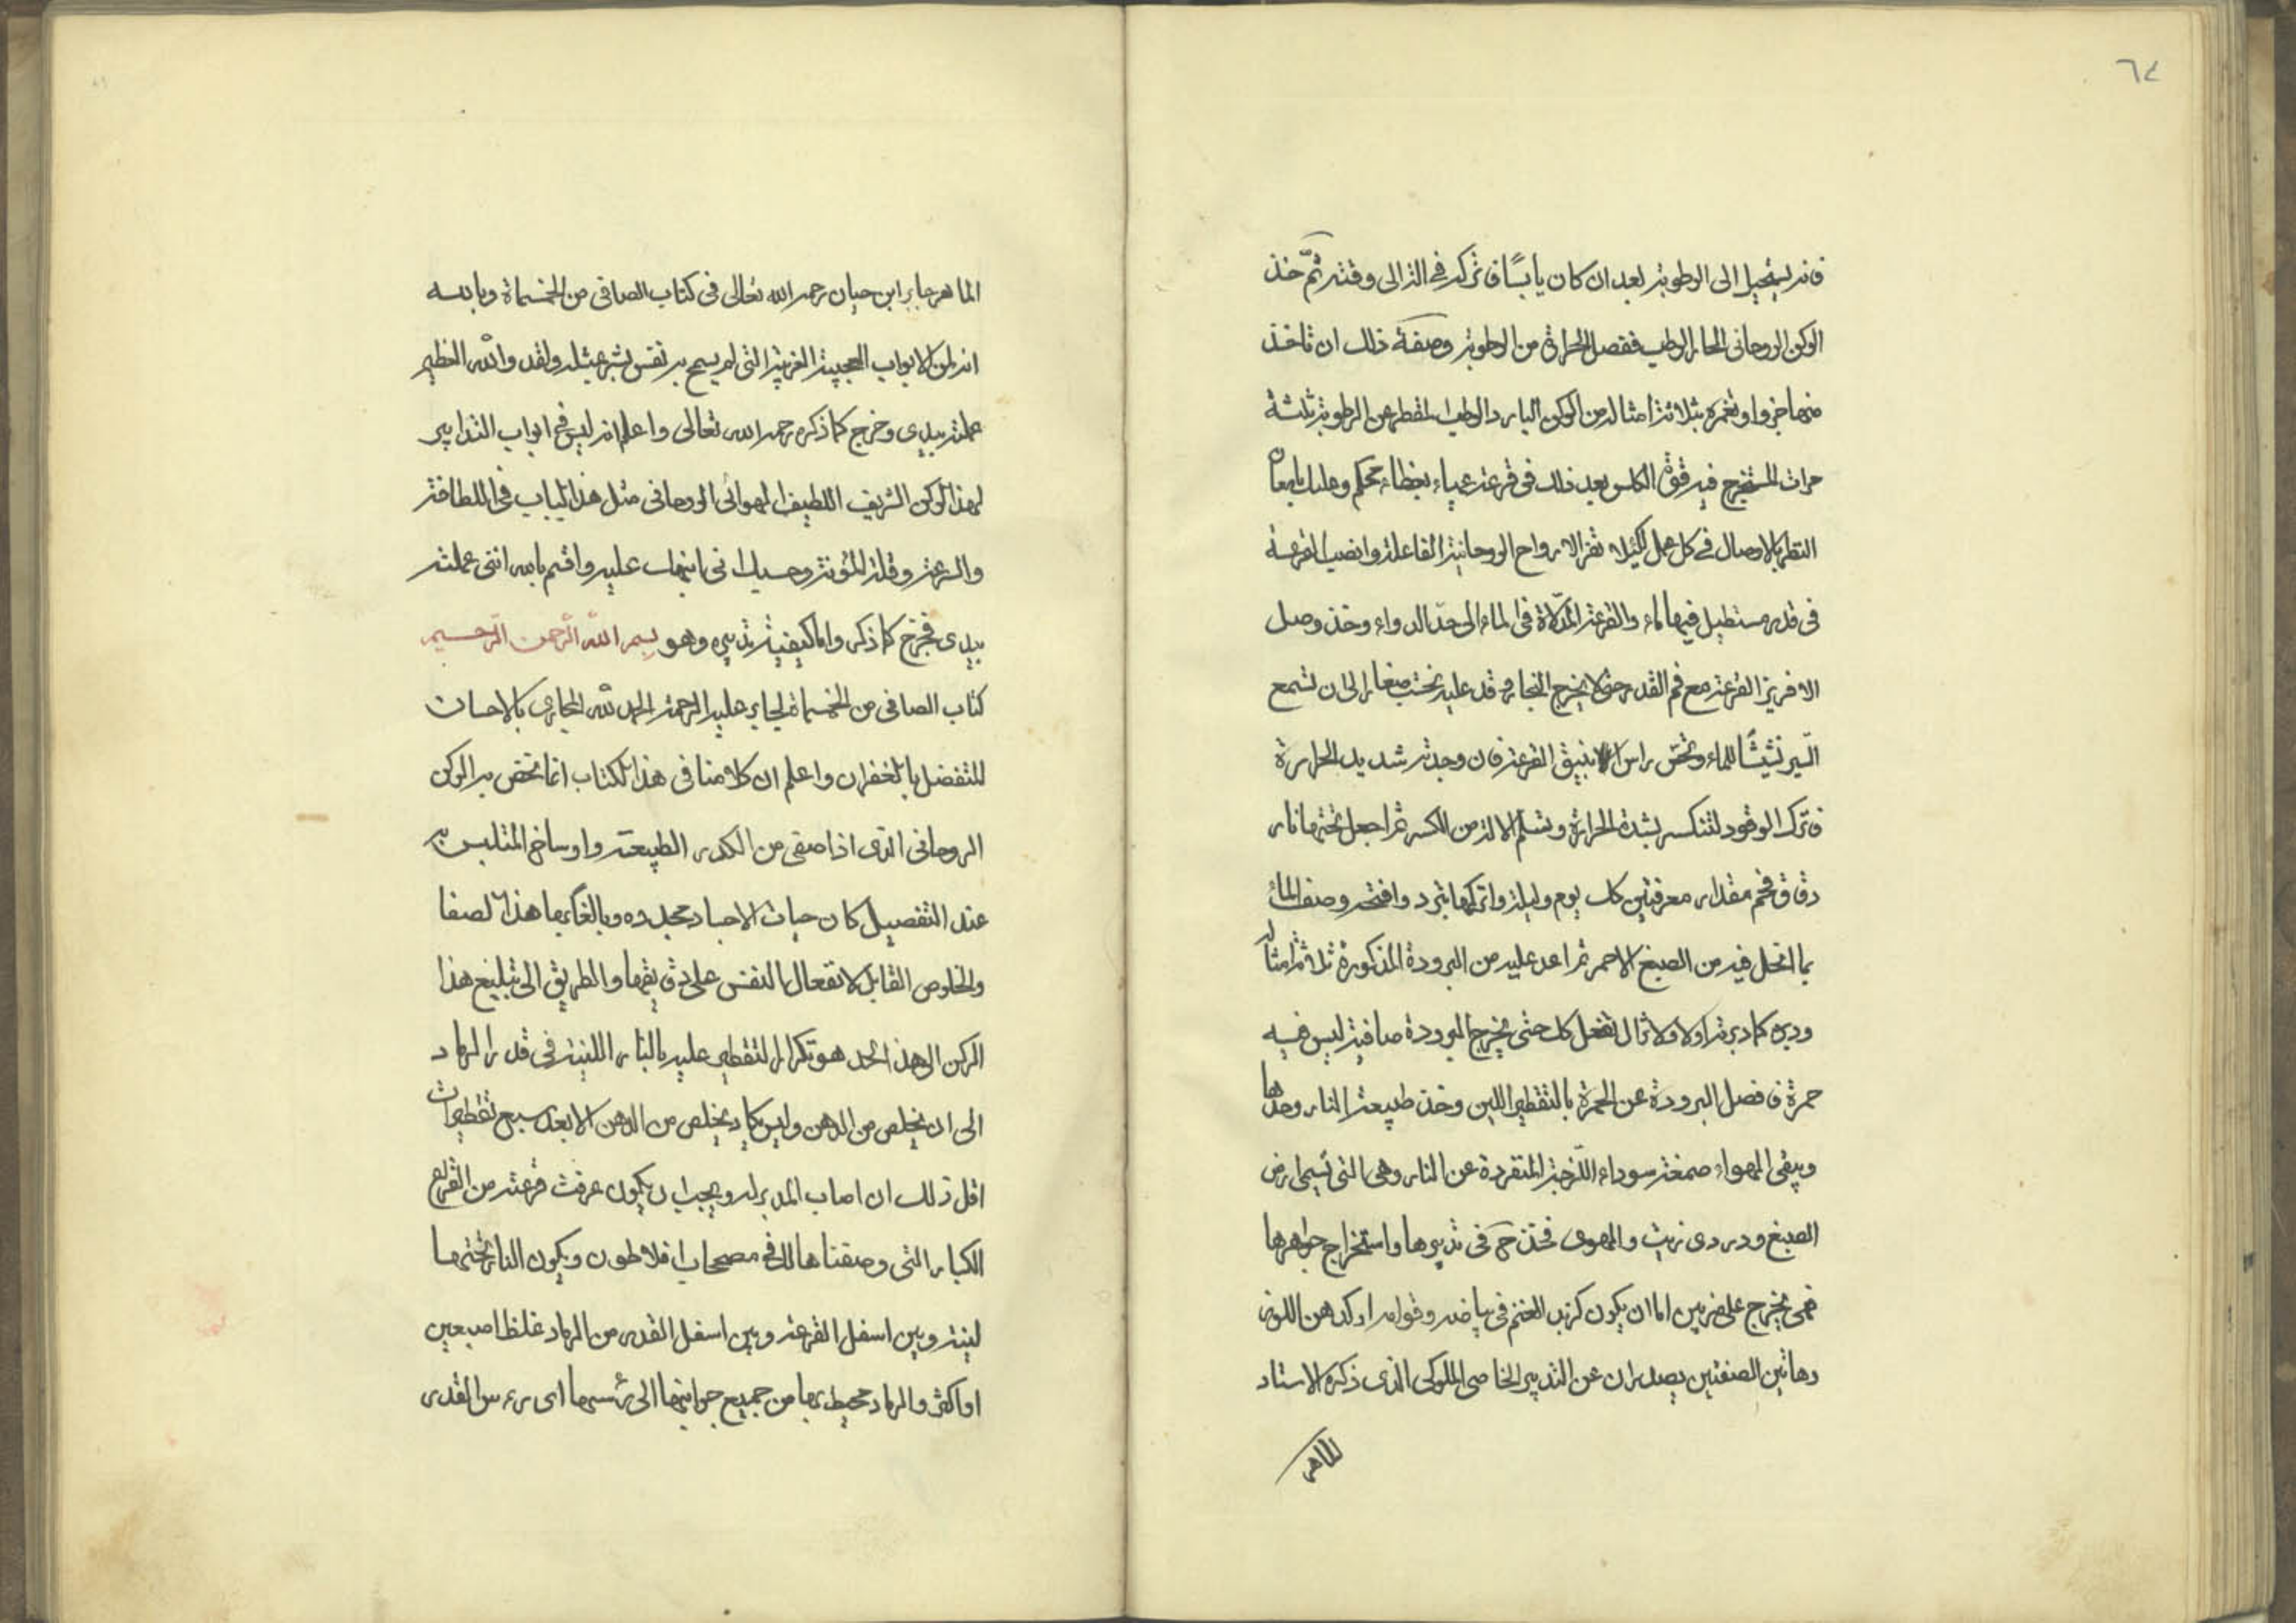 ٦٤
فانه يستحيل الى الرطوبة بعد ان كان يابسًا فاتركه في الز الى وقته ثمّ خذ
الركن الروحانى الحار الرطب ففصل الحرارة من الرطوبة وصفة ذلك ان تاخذ
منها جزوا وتغمره بثلاثة امثاله من الركن البارد الرطب المقطر عن الرطوبة ثلثة
مرات المستخرج فيه قوة الكلس بعد ذلك فى قرعة عمياء بغطاء محكم وعليك
النظر بالاوصال فى كل عمل لئلا تفر الارواح الروحانية الفاعلة وانصب القرعة
فى قدر مستطيل فيها ماء والقرعة المدلاة فى الماء الى حدّ الدواء وخذ وصل
الافريز القرعة مع فم القدر حتى لا يخرج البخار وقد عليه بحتب صغار الى ان تسمع
نشيشًا للماء وتجسّ راس الانبيق القرعة فان وجدته شديد الحرارة
فاترك الوقود لتنكسر بشدة الحرارة وتسلم الالة من الكسر ثم اجعل تحتها نار
دقاق فحم مقدار مغرفتين كل يوم وليلة واتركها تبرد وافتحه وصف الماء
بما انحل فيه من الصبغ الاحمر ثم اعد عليه من البرودة المذكورة ثلاثة امثاله
ودبره كما دبرته اولا ولا تزال تفعل كك حتى يخرج البرودة صافية ليس فيه
حمرة فافصل البرودة عن الحمرة بالتقطير اللين وخذ طبيعة النار وحدها
ويبقى الهواء صمغة سوداء اللزجة المتفردة عن النار وهى التى تسمى ارض
الصبغ ودردى زيت والهوى فخذ ح فى تدبيرها واستخراج جواهرها
فهى يخرج على ضربين اما ان يكون كزبد الغنم فى بياضه وقوامه او كدهن اللوز
وهاتين الصفتين يصدران عن التدبير الخاصى الملوكى الذى ذكره الاستاد
الماهر
الماهر جابر ابن حيان رحمه الله تعالى فى كتاب الصافى من الخمسماة وبالله
انه لمن الابواب العجيبة الغريبة التى لم يسمح به نفس بشر بمثله ولقد والله العظيم
عملته بيدى وخرج كما ذكره رحمه الله تعالى واعلم انه ليس فى ابواب التدابير
لهذا الركن الشريف اللطيف الهوائى الروحانى مثل هذا الباب فى اللطافة
والسرعة وقلة المؤنة وحسبك انى نبهتك عليه واقسم بالله اننى عملته
بيدى فخرج كما ذكر واما كيفية تدبيره وهو بسم الله الرحمن الرحيم
كتاب الصافى من الخمسماة لجابر عليه الرحمة الحمد لله المجازى بالاحسان
المتفضل بالغفران واعلم ان كلامنا فى هذا الكتاب انما نخص به الركن
الروحانى الذى اذا صفى من الكدر الطبيعة واوساخ المتلبس به
عند التفصيل كان حيات الاجساد مجدده وبالغا بها هذا الصفا
والخلوص القابل لانفعال النفس على دقيقها والطريق الى تبليغ هذا
الركن الى هذا الحد هو تكرار التقطير عليه بالنار اللينة فى قدر الرماد
الى ان يخلص من الدهن وليس يكاد يخلص من الدهن الا بعد سبع تقطيرات
اقل ذلك ان اصاب المدبر له ويجب ان يكون عرفت قرعته من القرع
الكبار التى وصفناها لك فى مصححات افلاطون ويكون النار تحتها
لينة وبين اسفل القرعة وبين اسفل القدر من الرماد غلظ اصبعين
او اكثر والرماد محيط بها من جميع جوانبها الى راسها اى رءس القدر